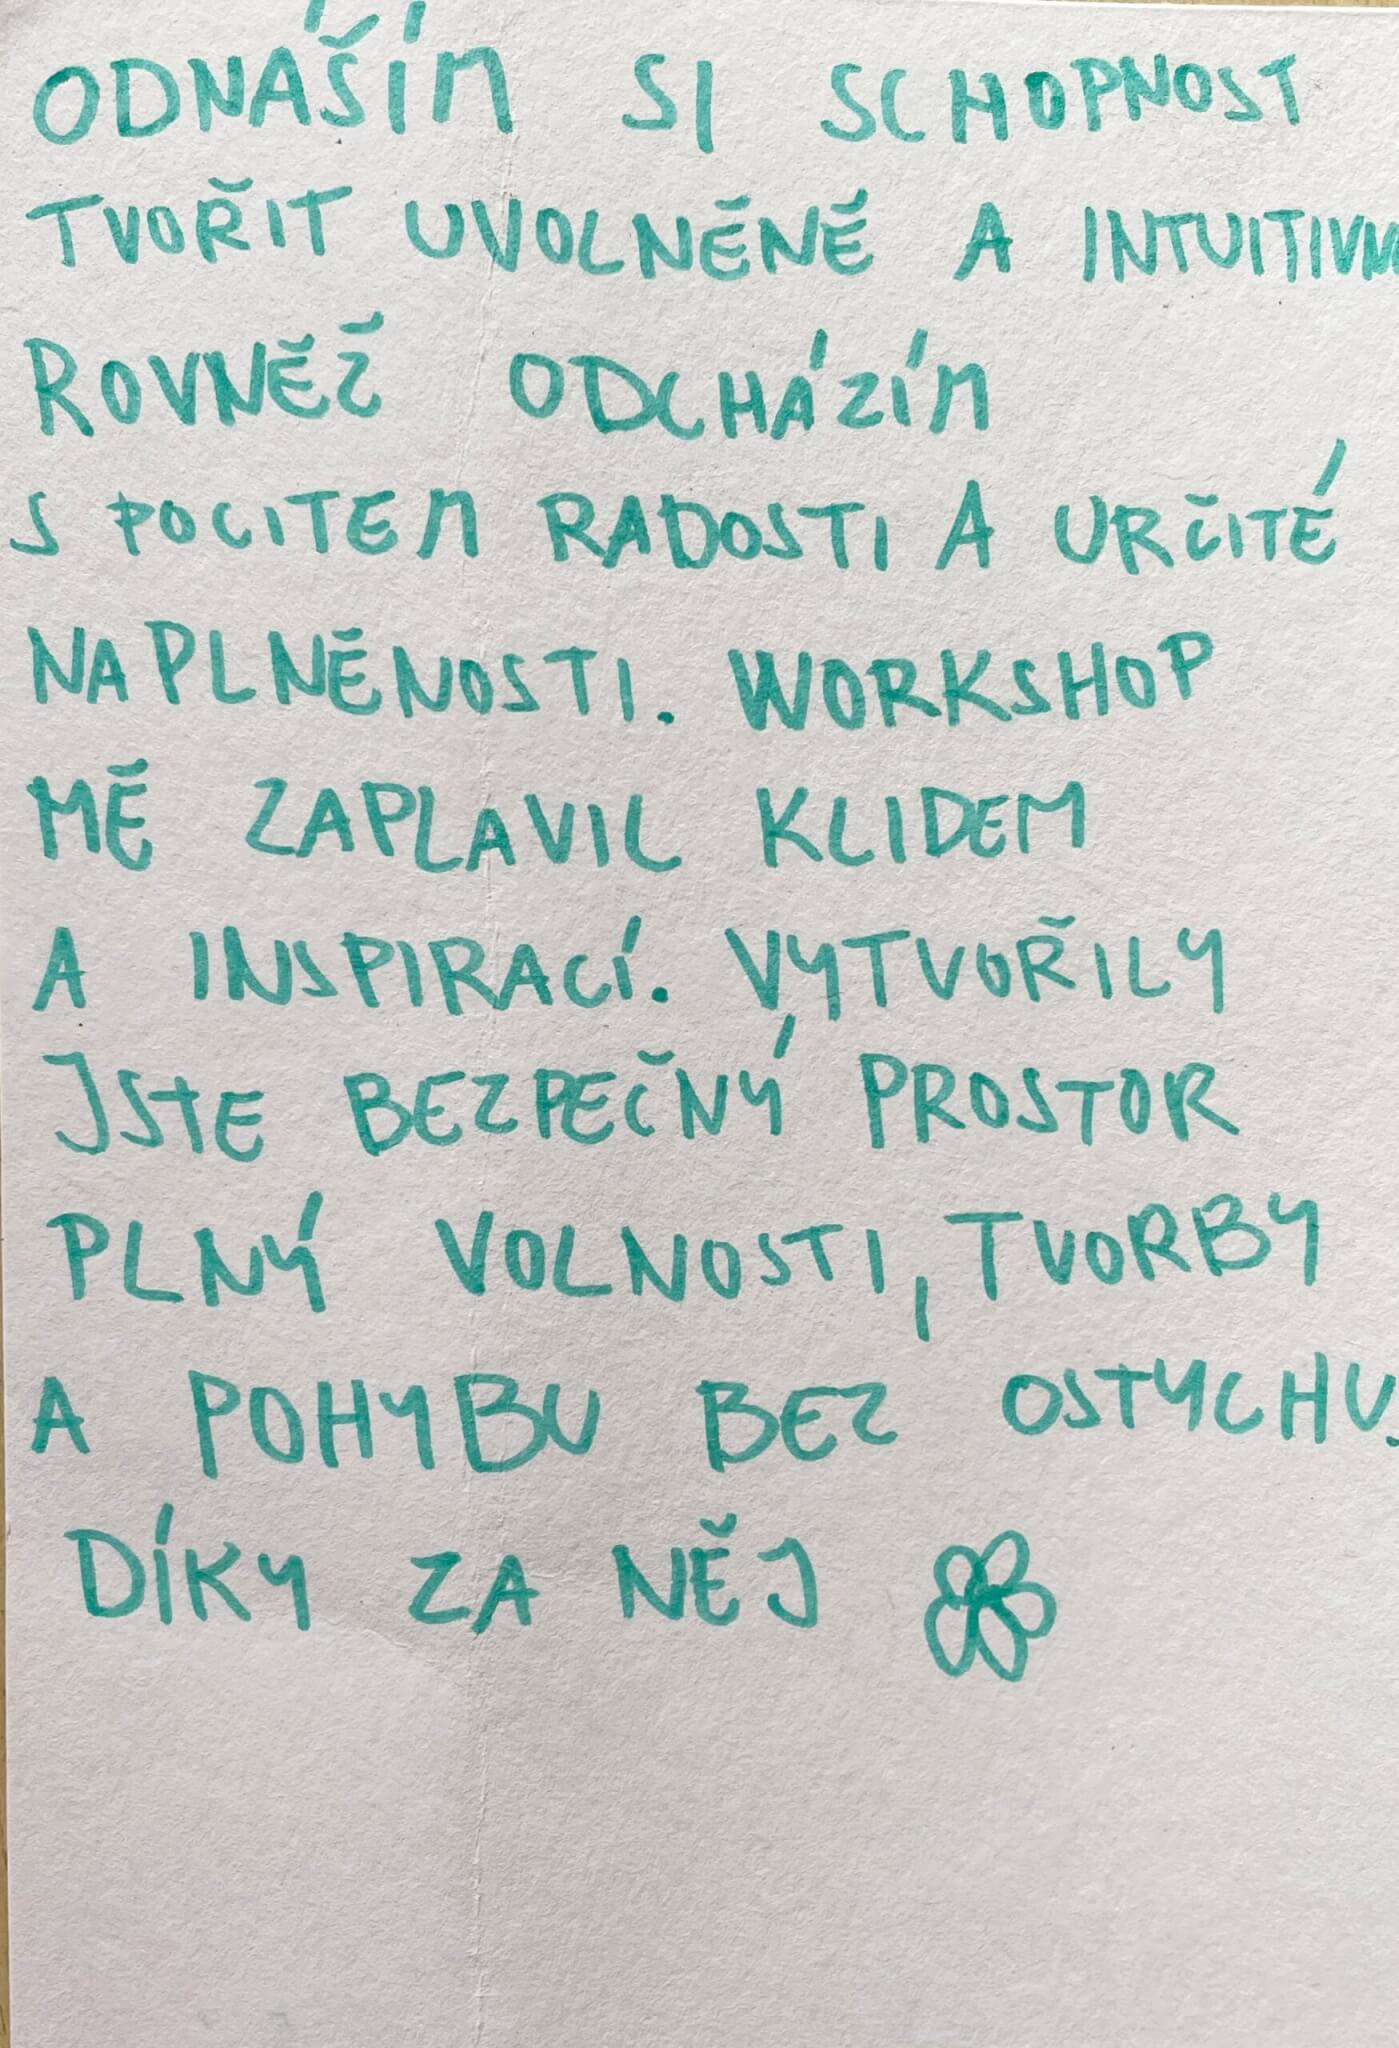 ODNÁŠÍM SI SCHOPNOST
TVOŘIT UVOLNĚNĚ A
ROVNĚŽ ODCHÁZÍM
S POCITEM RADOSTI A URČITÉ
NAPLNĚNOSTI. WORKSHOP
MĚ ZAPLAVIL KLIDEM
A INSPIRACÍ. VYTVOŘILY
JSTE BEZPEČNÝ PROSTOR
PLNÝ VOLNOSTI, TVORBY
A POHYBU BEZ OSTYCHU.
DÍKY ZA NĚJ